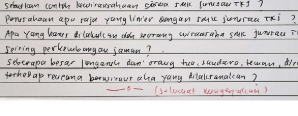 Sebutkan contoh kewirausahaan siswa SMK jurusan TKJ ?
Perusahaan apa saja yang linier dengan SMK jurusan TKJ ?
Apa yang harus dilakukan oleh seorang wirausaha SMK jurusan
Seiring perkembangan jaman ?
Seberapa besar pengaruh dari orang tua, saudara, teman,
terhadap rencana berwirausaha yang dilaksanakan ?
(Selamat mengerjakan)